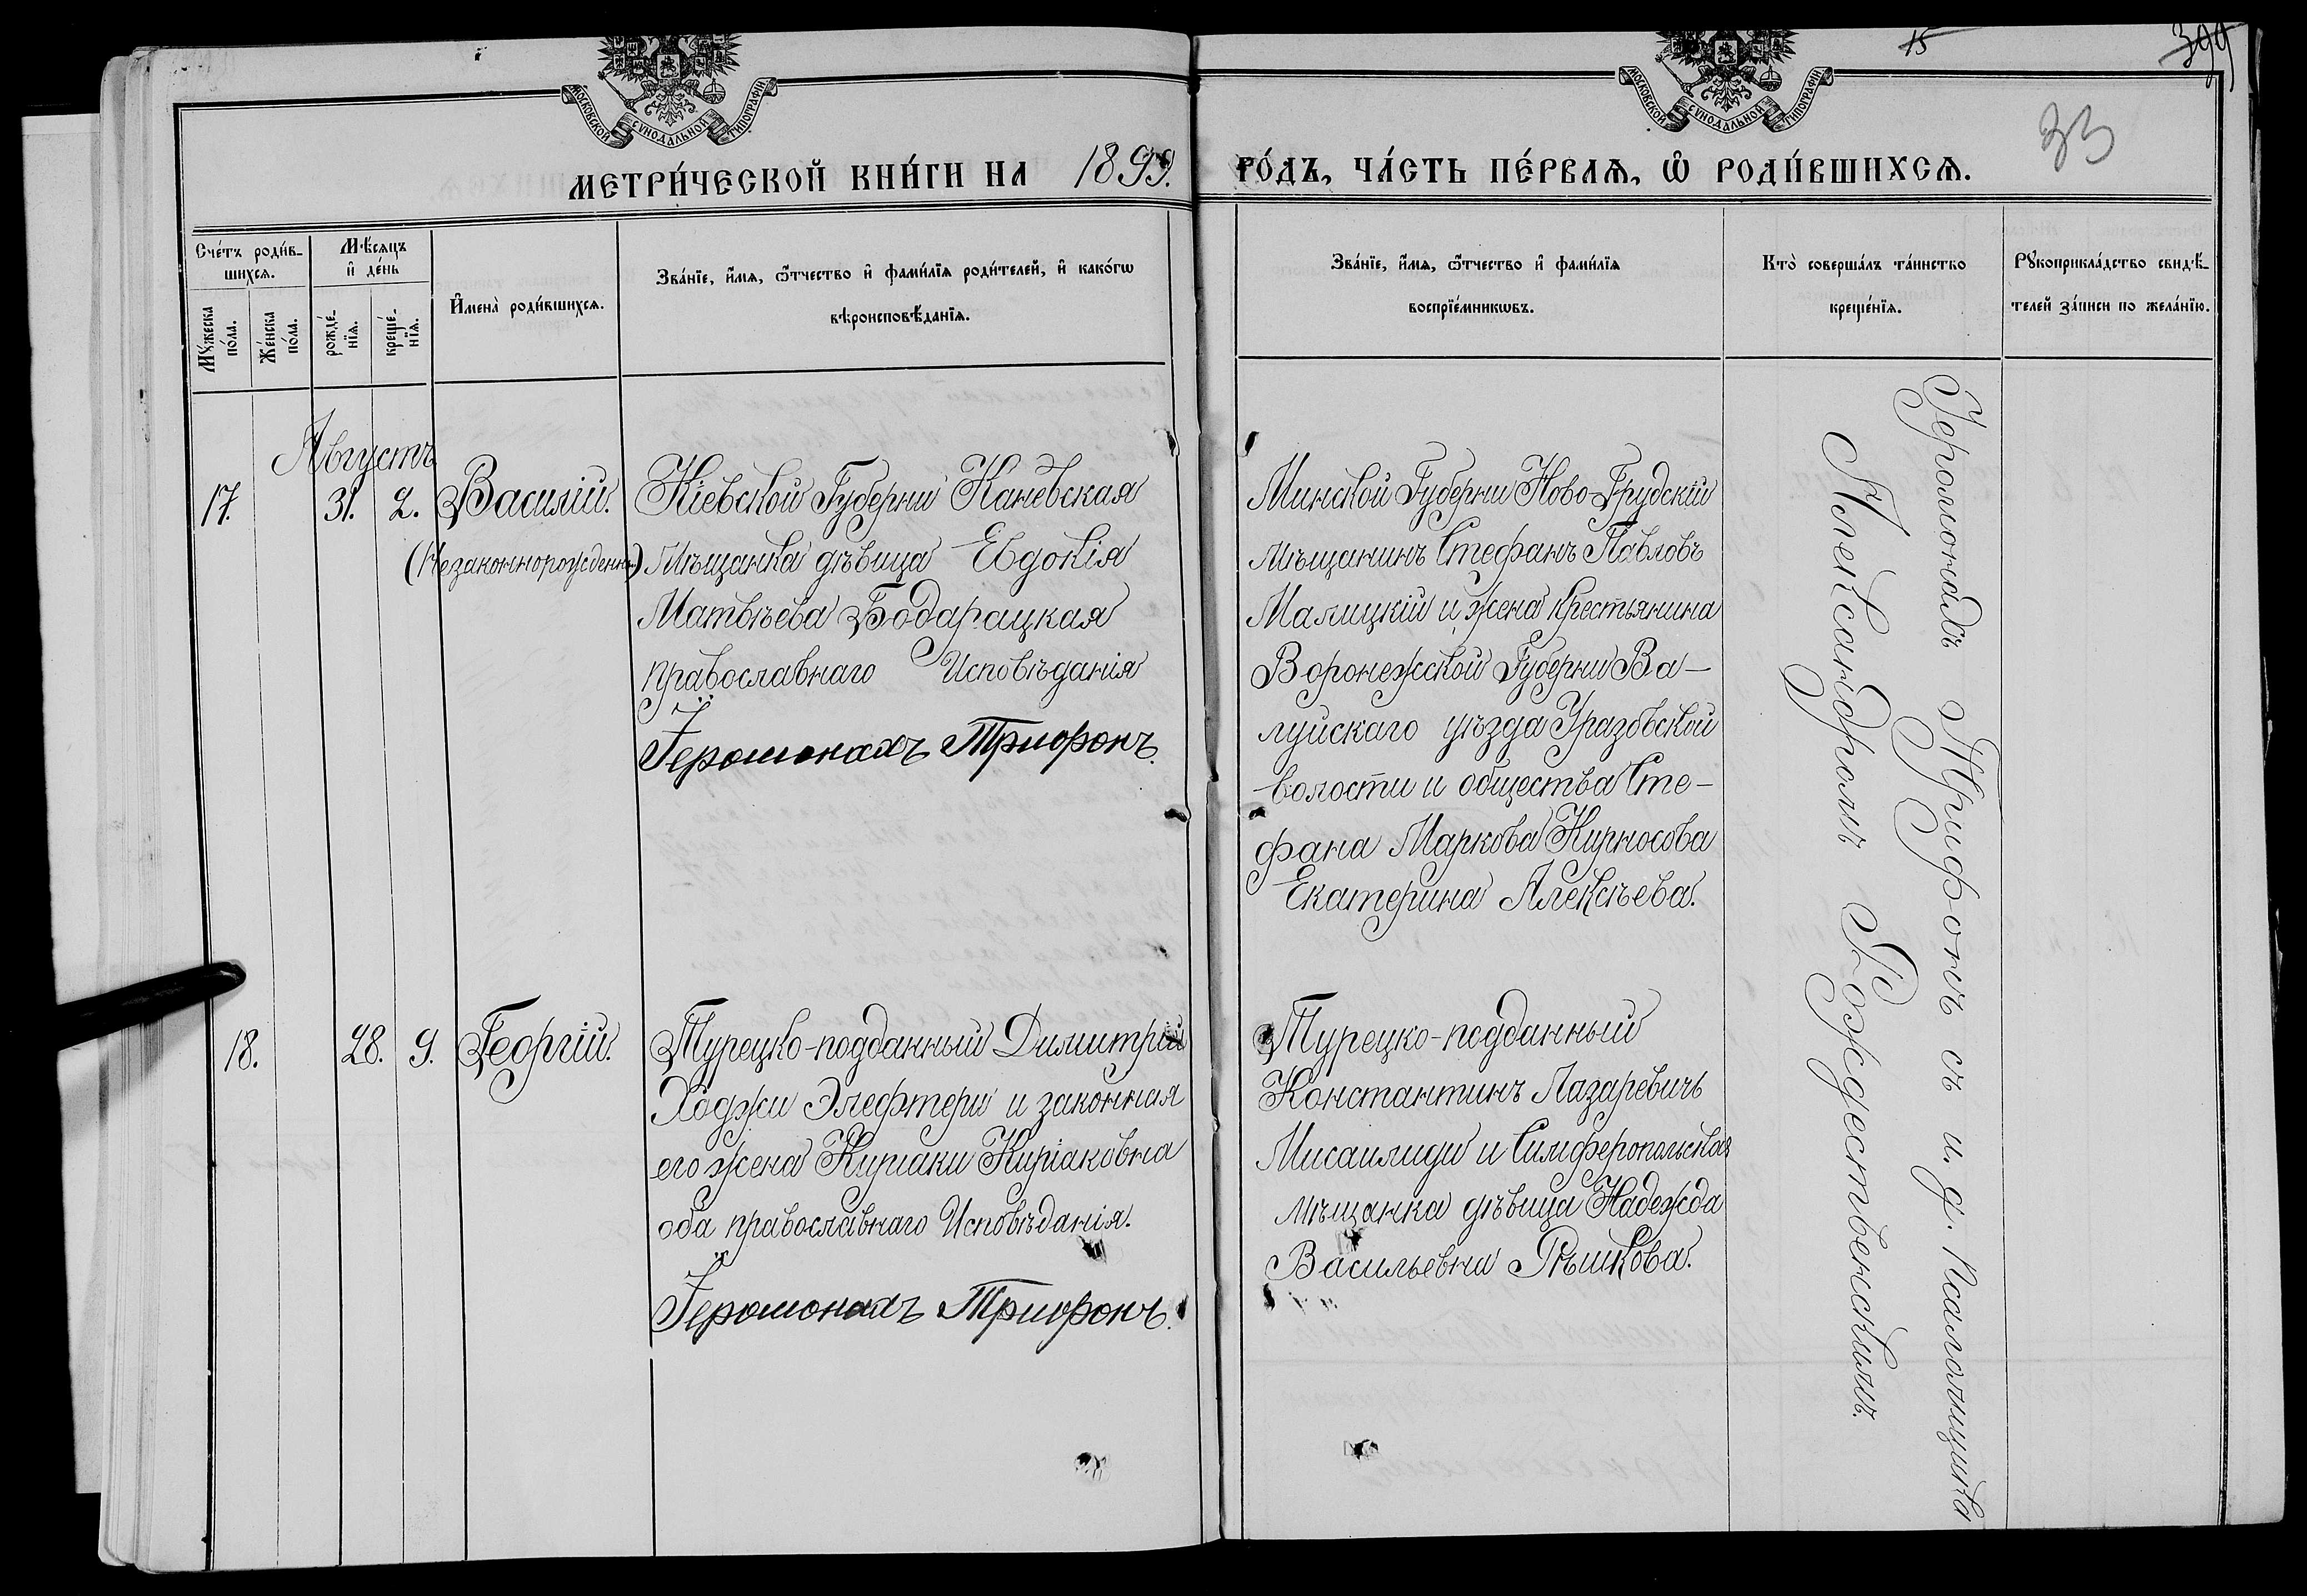 15
399
33
МОСКОВСКОЙ СѴНОДАЛЬНОЙ ТИПОГРАФІИ
МОСКОВСКОЙ СѴНОДАЛЬНОЙ ТИПОГРАФІИ
МЕТРИ́ЧЕСКОЙ КНИ́ГИ НА 1899. ГО́ДЪ, ЧА́СТЬ ПЕ́РВАѦ, Ѡ҆ РОДИ́ВШИХСѦ.
Сче́тъ роди́в-
шихсѧ.
Мꙋ́жеска по́ла.
Же́нска по́ла.
Мѣ́сѧцъ
и҆ де́нь
рожде́-
нїѧ.
креще́-
нїѧ.
И҆мена̀ роди́вшихсѧ.
Зва́нїе, и҆́мѧ, ѻ҆́тчество и҆ фами́лїѧ роди́телей, и҆ како́гѡ
вѣроисповѣ́данїѧ.
Зва́нїе, и҆́мѧ, ѻ҆́тчество и҆ фами́лїѧ
воспрїе́мникѡвъ.
Кто̀ соверша́лъ та́инство
креще́нїѧ.
Рꙋкоприкла́дство свидѣ́-
телей за́писи по жела́нїю.
Августъ
17. 31. 2. Василій.
(Незаконнорожденн.)
Кіевской Губерніи Каневская
Мѣщанка дѣвица Евдокія
Матвѣева Бодарацкая
православнаго Исповѣданія
Іеромонахъ Трифонъ.
Минской Губерніи Ново-Грудскій
Мѣщанинъ Стефанъ Павловъ
Малицкій и жена Крестьянина
Воронежской Губерніи Ва-
луйскаго уѣзда Уразовской
волости и общества Сте-
фана Маркова Кирносова
Екатерина Алексѣева.
18. 28. 9. Георгій.
Турецко-подданный Димитрій
Ходжи Элефтери и законная
его жена Киріаки Киріаковна
оба православнаго Исповѣданія.
Іеромонахъ Трифонъ.
Турецко-подданный
Константинъ Лазаревичъ
Мисаилиди и Симферопольская
мѣщанка дѣвица Надежда
Васильевна Рѣшкова.
Іеромонахъ Трифонъ съ и. д. Псаломщика
Александромъ Рождественскимъ.